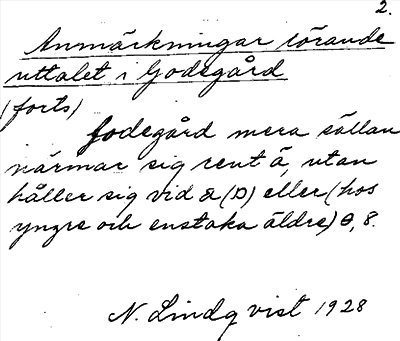 2.
Anmärkningar rörande
uttalet i Godegård
(forts)
Godegård mera sällan
närmar sig rent ä, utan
håller sig vid eller (hos
yngre och enstaka äldre) ɵ, 8.
N. Lindqvist 1928